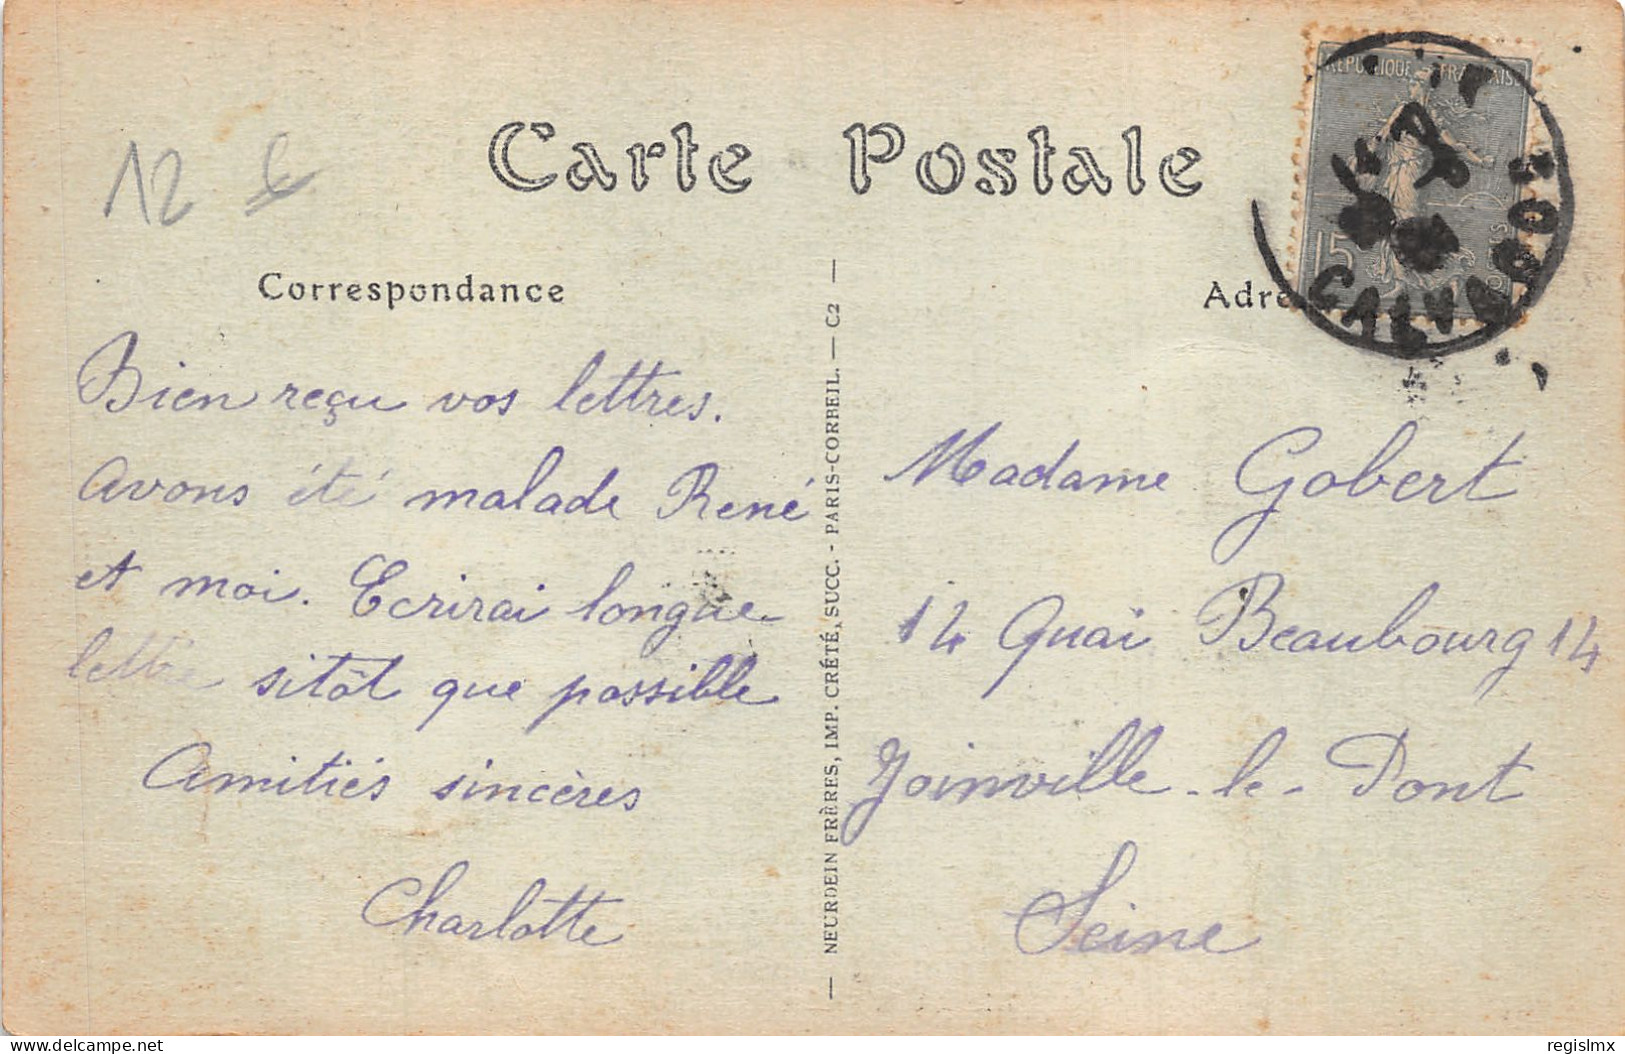 12 €
Carte Postale
RÉPUBLIQUE FRANÇAISE
15
CALVADOS
Correspondance
Adre
Bien reçu vos lettres.
Avons été malade René
et moi. Ecrirai longue
lettre sitôt que possible
Amitiés sincères
Charlotte
— NEURDEIN FRÈRES, IMP. CRÉTÉ, SUCC. - PARIS-CORBEIL. — C2 —
Madame Gobert
14 Quai Beaubourg 14
Joinville-le-Pont
Seine
delcampe.net
regislmx